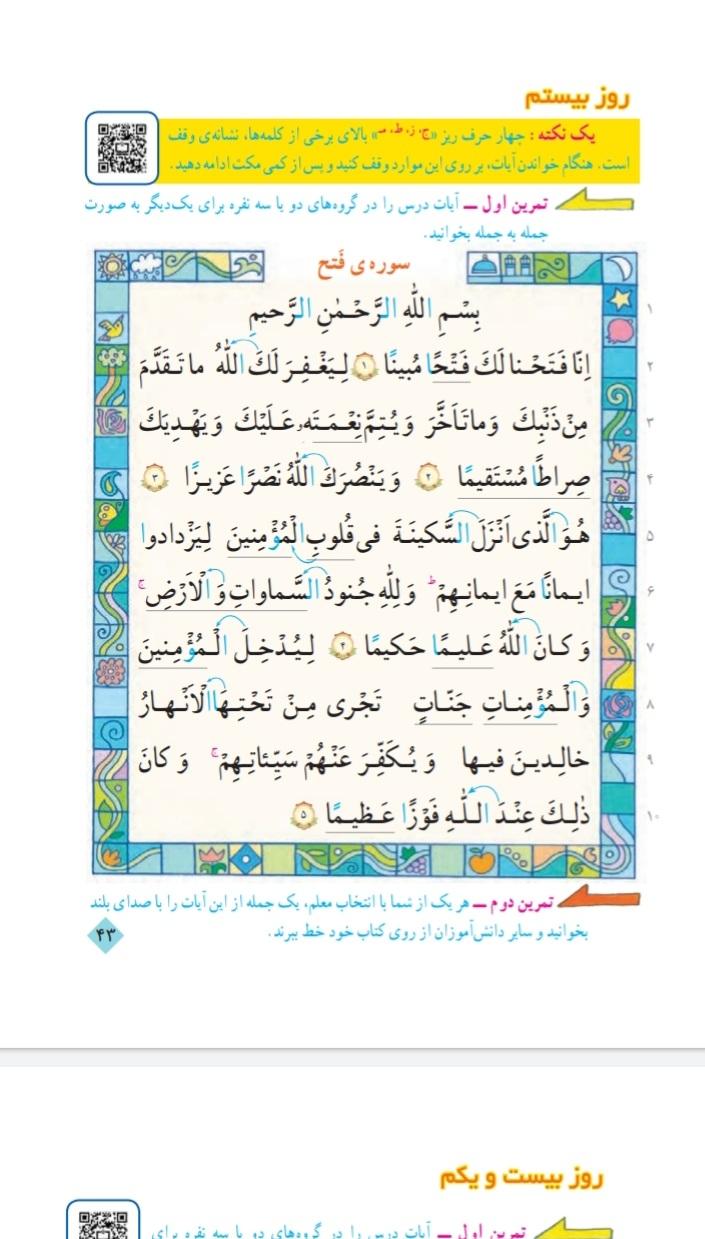 روز بیستم
یک نکته : چهار حرف ریز «ج، ز، ط، صـ» بالای برخی از کلمه‌ها، نشانه‌ی وقف
است. هنگام خواندن آیات، بر روی این موارد وقف کنید و پس از کمی مکث ادامه دهید.
تمرین اول ــ آیات درس را در گروه‌های دو یا سه نفره برای یک‌دیگر به صورت
جمله به جمله بخوانید.
سوره‌ی فَتح
بِسْمِ اللّٰهِ الرَّحْمٰنِ الرَّحیمِ ۱
اِنّا فَتَحْنا لَكَ فَتْحًا مُبینًا ۱ لِیَغْفِرَ لَكَ اللّٰهُ ما تَقَدَّمَ ۲
مِنْ ذَنْبِكَ وَ ما تَاَخَّرَ وَ یُتِمَّ نِعْمَتَه‌و عَلَیْكَ وَ یَهْدِیَكَ ۳
صِراطًا مُسْتَقیمًا ۲ وَ یَنْصُرَكَ اللّٰهُ نَصْرًا عَزیزًا ۳ ۴
هُوَ الَّذی اَنْزَلَ السَّكینَةَ فی قُلوبِ الْمُؤْمِنینَ لِیَزْدادوا ۵
ایمانًا مَعَ ایمانِهِمْ ط وَ لِلّٰهِ جُنودُ السَّماواتِ وَ الْاَرْضِ ج ۶
وَ كانَ اللّٰهُ عَلیمًا حَكیمًا ۴ لِیُدْخِلَ الْمُؤْمِنینَ ۷
وَ الْمُؤْمِناتِ جَنّاتٍ تَجْری مِنْ تَحْتِهَا الْاَنْهارُ ۸
خالِدینَ فیها وَ یُكَفِّرَ عَنْهُمْ سَیِّئاتِهِمْ ج وَ كانَ ۹
ذٰلِكَ عِنْدَ اللّٰهِ فَوْزًا عَظیمًا ۵ ۱۰
تمرین دوم ــ هر یک از شما با انتخاب معلم، یک جمله از این آیات را با صدای بلند
بخوانید و سایر دانش‌آموزان از روی کتاب خود خط ببرند.
۴۳
روز بیست و یکم
تمرین اول ــ آیات درس را در گروه‌های دو یا سه نفره برای